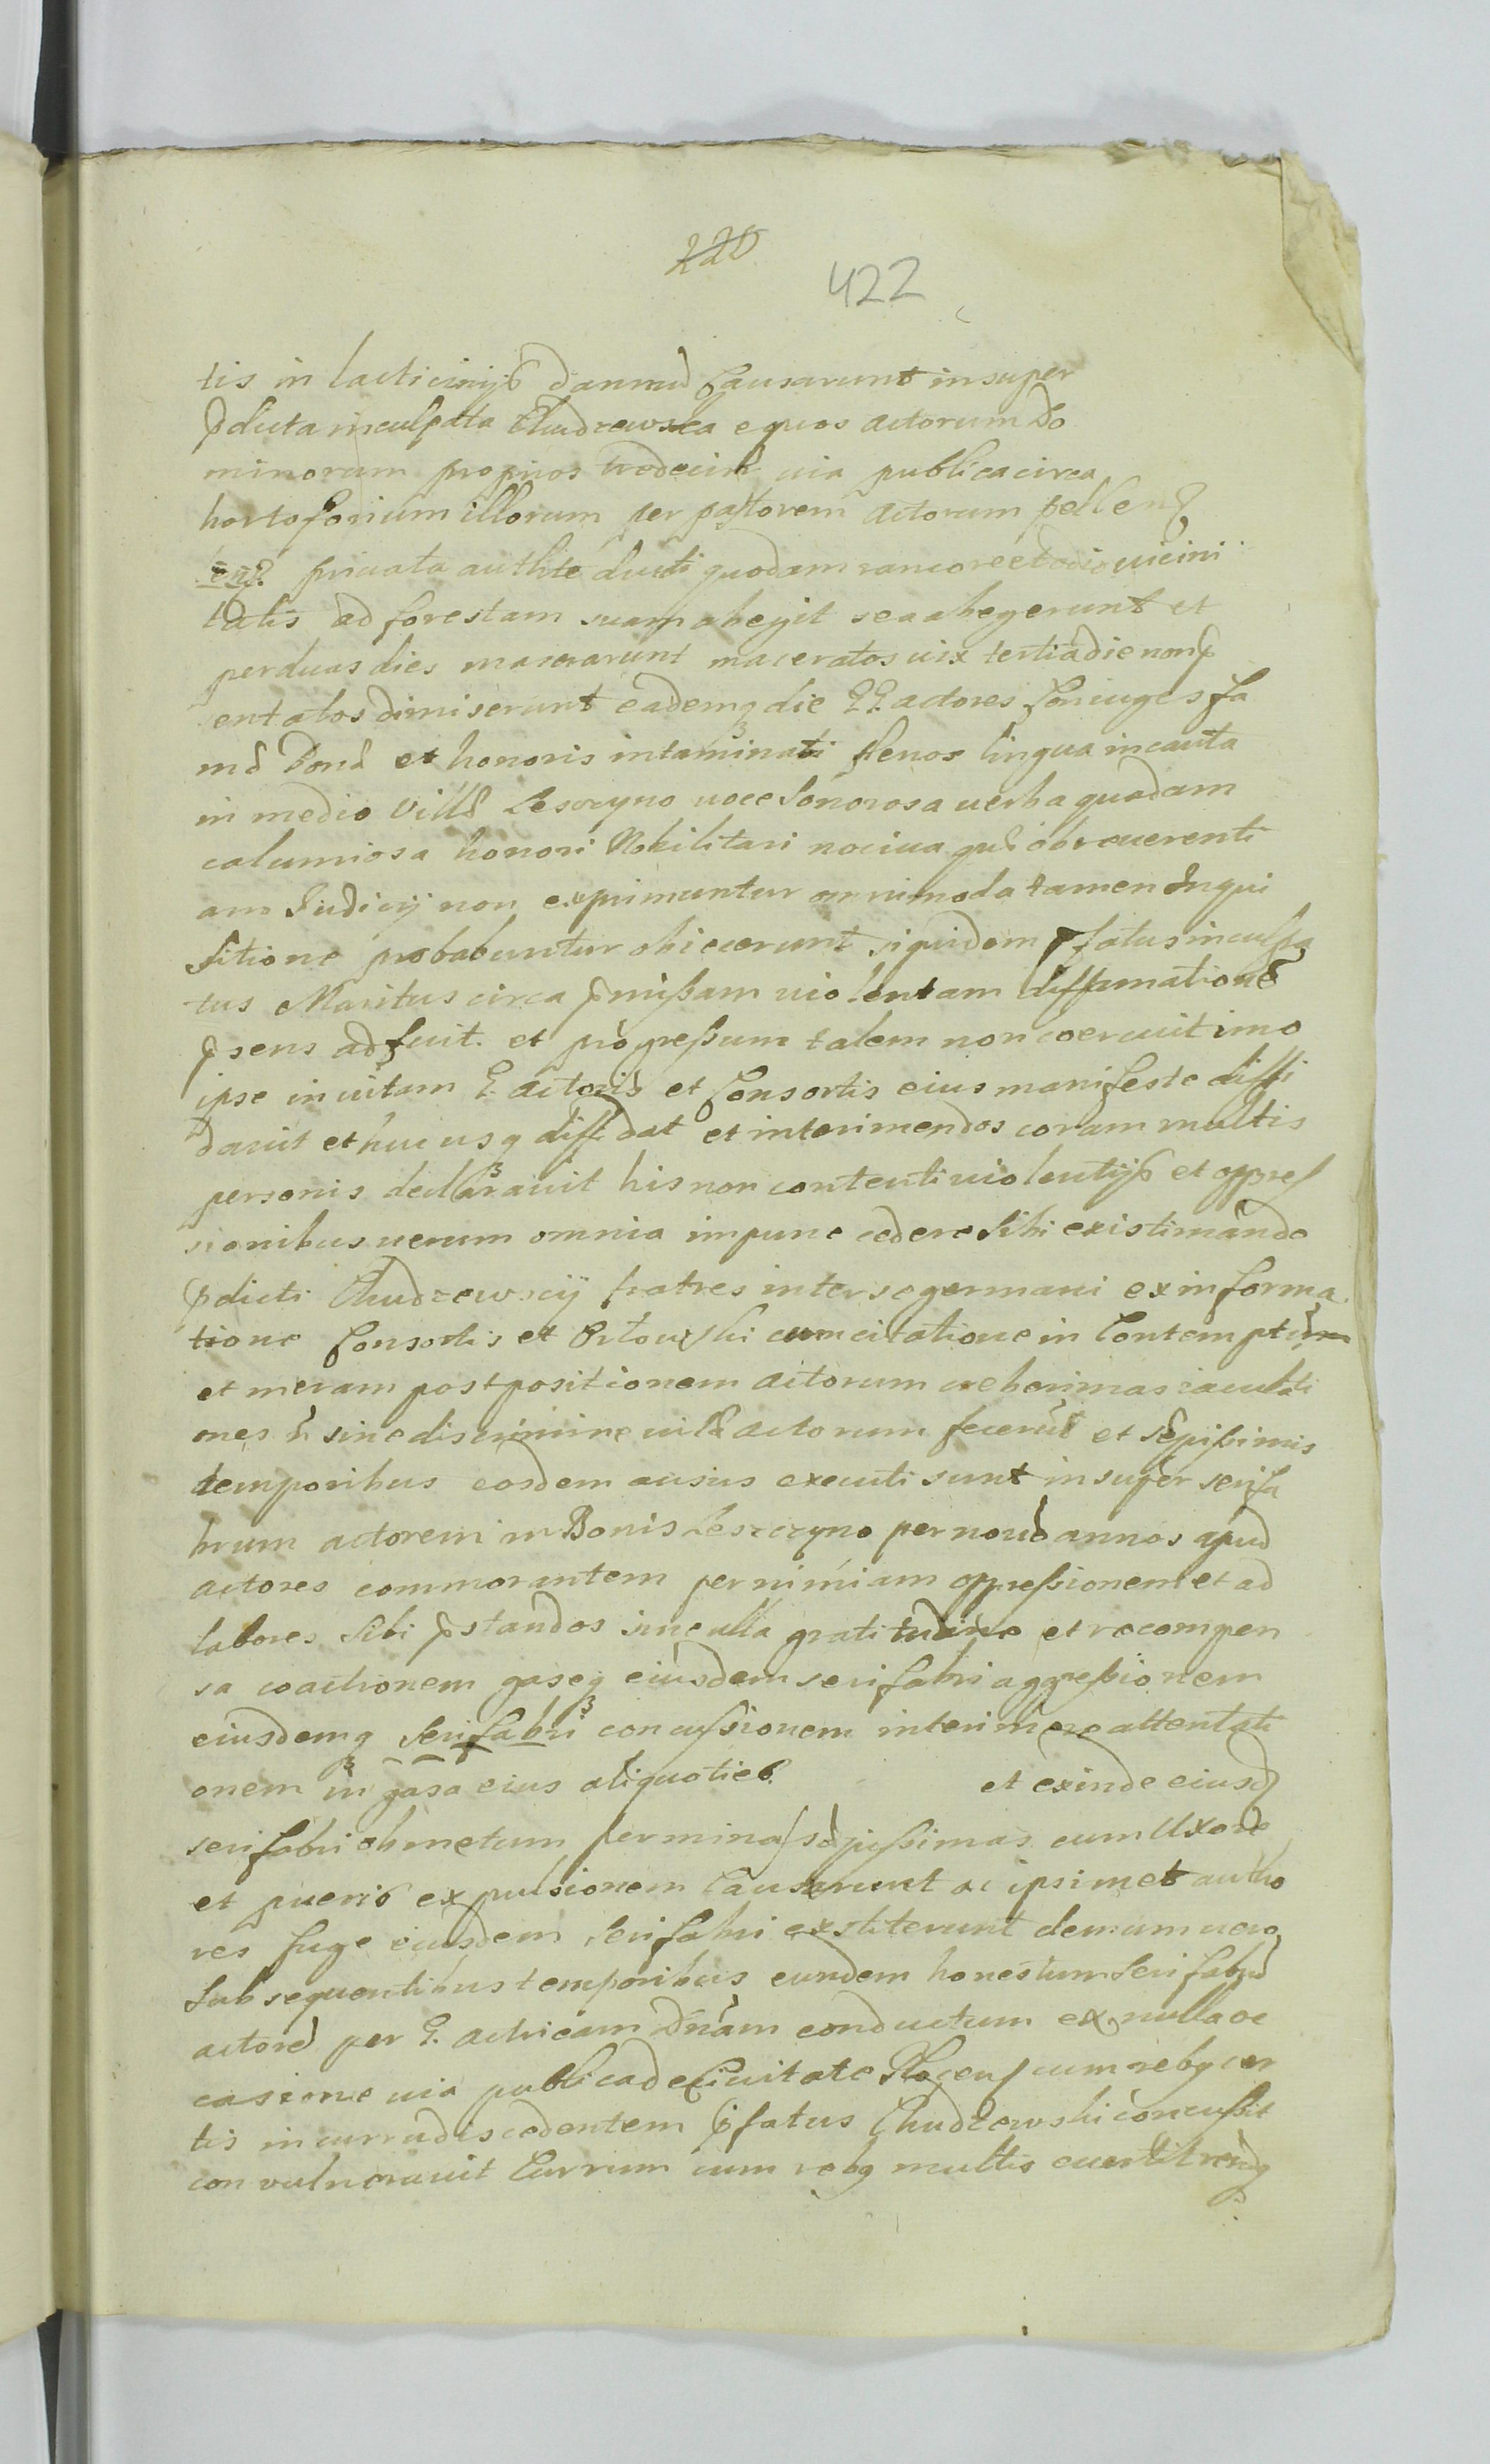 220
422
tis in lacticinijs damnũ causarunt insuper
p̃dicta inculpata Chudzewska equos actorum Do
minorum proprios tredecim via publica circa
hortosorium illorum per pastorem actorum pellen
privata authte ducti quodam rancore et odio vicini
tatis ad forestam suam abegit seu abegerunt et
per duas dies macerarunt maceratos vix tertia die non p̃
entatos dimiserunt eademq die GG actores Coniuges fa
mæ bonæ et honoris intaminati plenos lingua incauta
in medio villæ Leszczyno voce sonorosa verba quædam
calumniosa honori Nobilitari nociva quæ ob reverenti
am Judicij non exprimuntur omnimoda tamen Inqui
sitione probabuntur obiecerunt siquidem p̃fatus inculpa
tus Maritus circa p̃missam violentam diffamationẽ
p̃sens adfuit et progressum talem non coercuit imo
ipse in vitam G. actoris et Consortis eius manifeste diffi
davit et huc usq diffidat et interimendos coram multis
personis declaravit his non contenti violentijs et oppres
sionibus verum omnia impune cedere sibi existimando
p̃dicti Chudzewscij fratres inter se germani ex informa
tione Consortis et Orłowski concitatione in Contemptum
et meram postpositionem actorum creberrimas iaculati
ones in sine discrimine villæ actorum fecerũt et sæpissimis
temporibus eosdem ausus executi sunt insuper serifa
brum actorem in Bonis Leszczyno per novẽ annos apud
actores commorantem per nimiam oppressionem et ad
labores sibi p̃standos sine ulla gratitudine et recompen
sa coactionem casæq eiusdem serifabri aggressionem
eiusdemq serifabri concussionem interimere attentati
onem in casa eius aliquoties et exinde eiusd
serifabri ob metum per minas sæpissimas cum Uxore
et pueris expulsionem causarunt ac ipsimet autho
res fugæ eiusdem serifabri exstiterunt demum vero
subsequentibus temporibus eundem honestum serifabrũ
actorẽ per G. actricem Dnam conductum ex nulla oc
casione via publica de Civitate Plocen cum rebq cer
tis in curru discedentem p̃fatus Chudzewski concussit
convulneravit Currum cum rebq multis evertit rerũq